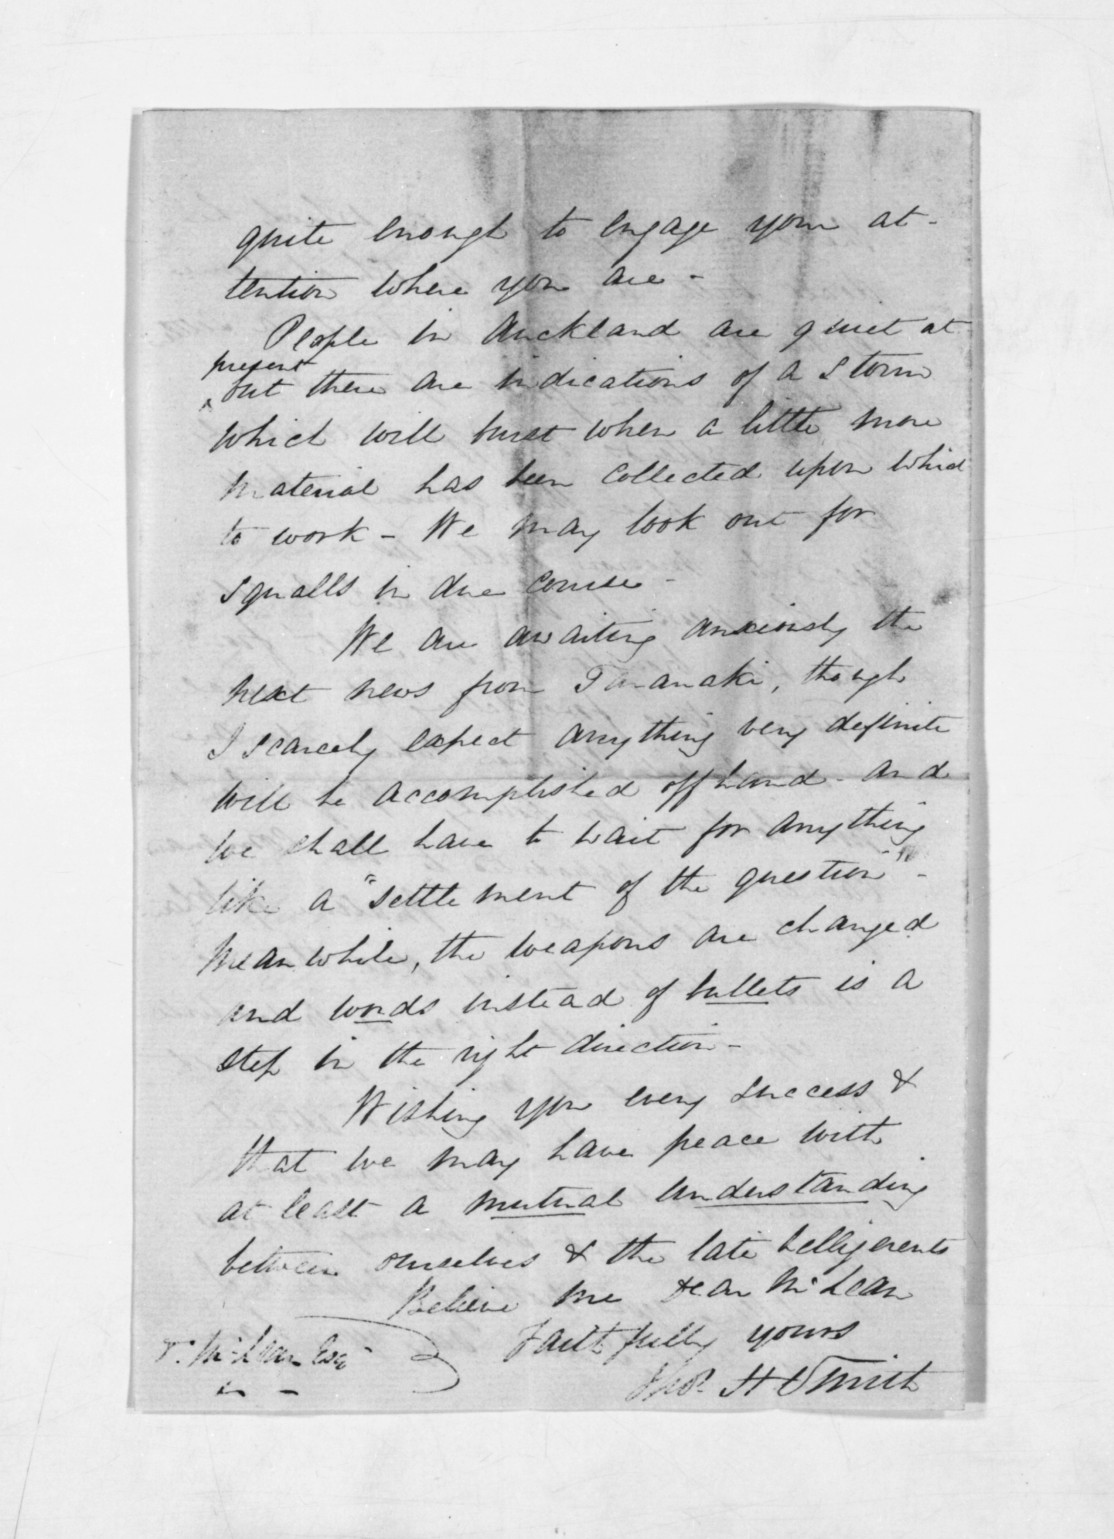 quite enough to engage your at-
tention where you are -
People in Auckland are quiet at
present
but there are indications of a storm
which will burst when a little more
material has been collected upon which
to work - We may look out for
squalls in due course -
We are awaiting anxiously the
next news from Taranaki, though
I scarcely expect anything very definite
will be accomplished off hand - and
we shall have to wait for anything
like a "settlement of the question" -
Meanwhile, the weapons are changed
and words instead of bullets is a
step in the right direction -
Wishing you every success &
that we may have peace with
at least a mutual understanding
between ourselves & the late belligerents
Believe me Dear McLean
Faithfully yours
Thos. H Smith
McLean Esq